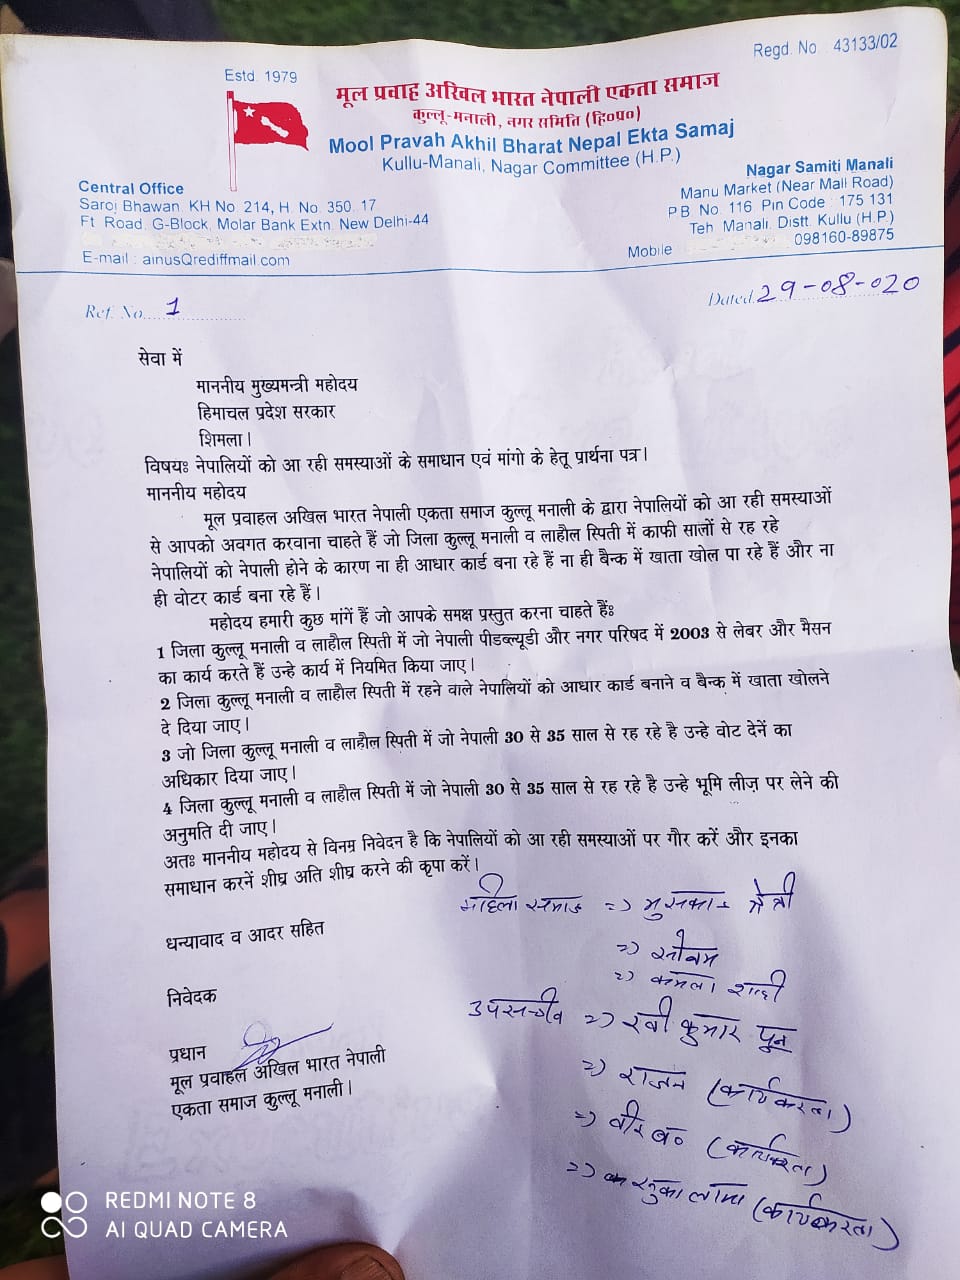 Regd. No. 43133/02
Estd. 1979
मूल प्रवाह अखिल भारत नेपाली एकता समाज
कुल्लू-मनाली, नगर समिति (हि०प्र०)
Mool Pravah Akhil Bharat Nepal Ekta Samaj
Kullu-Manali, Nagar Committee (H.P.)
Central Office
Saroj Bhawan, KH No. 214, H. No. 350, 17
Ft. Road, G-Block, Molar Bank Extn. New Delhi-44
E-mail : ainusQrediffmail.com
Nagar Samiti Manali
Manu Market (Near Mall Road)
P.B. No. 116 Pin Code : 175 131
Teh. Manali, Distt. Kullu (H.P.)
Mobile 098160-89875
Ref. No. 1
Dated 29-08-020
सेवा में
माननीय मुख्यमन्त्री महोदय
हिमाचल प्रदेश सरकार
शिमला।
विषयः नेपालियों को आ रही समस्याओं के समाधान एवं मांगो के हेतू प्रार्थना पत्र।
माननीय महोदय
मूल प्रवाहल अखिल भारत नेपाली एकता समाज कुल्लू मनाली के द्वारा नेपालियों को आ रही समस्याओं
से आपको अवगत करवाना चाहते हैं जो जिला कुल्लू मनाली व लाहौल स्पिती में काफी सालों से रह रहे
नेपालियों को नेपाली होने के कारण ना ही आधार कार्ड बना रहे हैं ना ही बैन्क में खाता खोल पा रहे हैं और ना
ही वोटर कार्ड बना रहे हैं।
महोदय हमारी कुछ मांगें हैं जो आपके समक्ष प्रस्तुत करना चाहते हैंः
1 जिला कुल्लू मनाली व लाहौल स्पिती में जो नेपाली पीडब्ल्यूडी और नगर परिषद में 2003 से लेबर और मैसन
का कार्य करते हैं उन्हे कार्य में नियमित किया जाए।
2 जिला कुल्लू मनाली व लाहौल स्पिती में रहने वाले नेपालियों को आधार कार्ड बनाने व बैन्क में खाता खोलने
दे दिया जाए।
3 जो जिला कुल्लू मनाली व लाहौल स्पिती में जो नेपाली 30 से 35 साल से रह रहे है उन्हे वोट देनें का
अधिकार दिया जाए।
4 जिला कुल्लू मनाली व लाहौल स्पिती में जो नेपाली 30 से 35 साल से रह रहे है उन्हे भूमि लीज़ पर लेने की
अनुमति दी जाए।
अतः माननीय महोदय से विनम्र निवेदन है कि नेपालियों को आ रही समस्याओं पर गौर करें और इनका
समाधान करनें शीघ्र अति शीघ्र करने की कृपा करें।
महिला समाज => मुसकान
=> सोनम
=> कमला शाही
धन्यवाद व आदर सहित
निवेदक
उपसचीव => रवी कुमार पुन
=> राजन (कार्यकरता)
=> वीर ब० (कार्यकरता)
=> लामा (कार्यकरता)
प्रधान
मूल प्रवाहल अखिल भारत नेपाली
एकता समाज कुल्लू मनाली।
REDMI NOTE 8
AI QUAD CAMERA